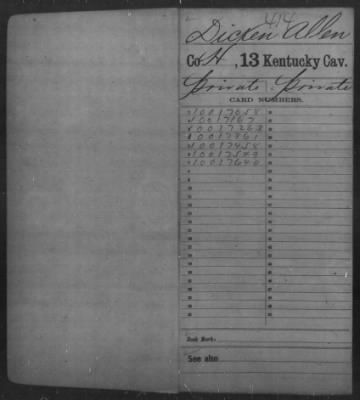 414
Dicken Allen
Co H, 13 Kentucky Cav.
Private Private
CARD NUMBERS.
10017058
10017167
10017263
10017361
10017458
10017549
10017646
Book Mark:
See also